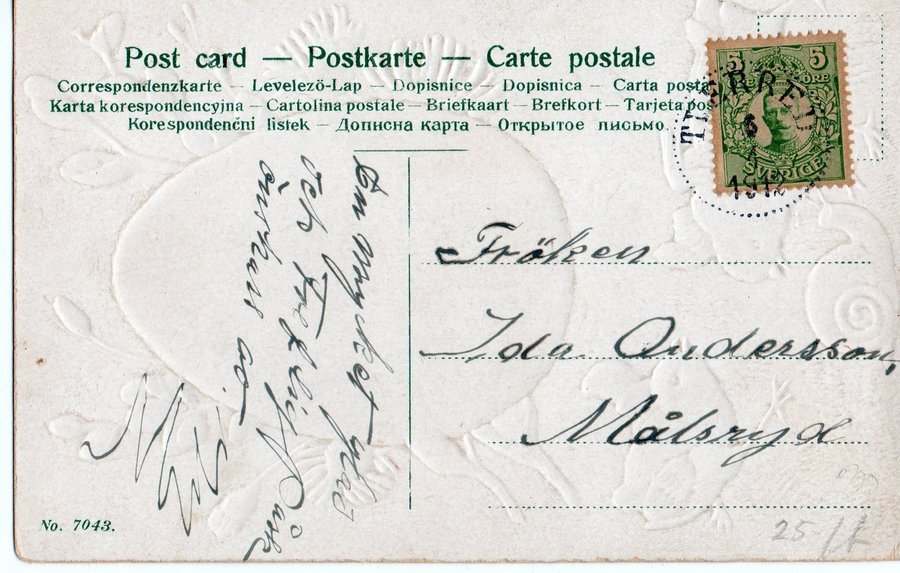 Post card — Postkarte — Carte postale
Correspondenzkarte — Levelező-Lap — Dopisnice — Dopisnica — Carta posta
Karta korespondencyjna — Cartolina postale — Briefkaart — Brefkort — Tarjeta pos
Korespondenční listek — Дописна карта — Открытое письмо
5 5
ÖRE
SVERIGE
6
1912
En Mycket glad
och Treflig Påsk
önskas av
Fröken
Ida Andersson,
Målsryd
No. 7043.
25-